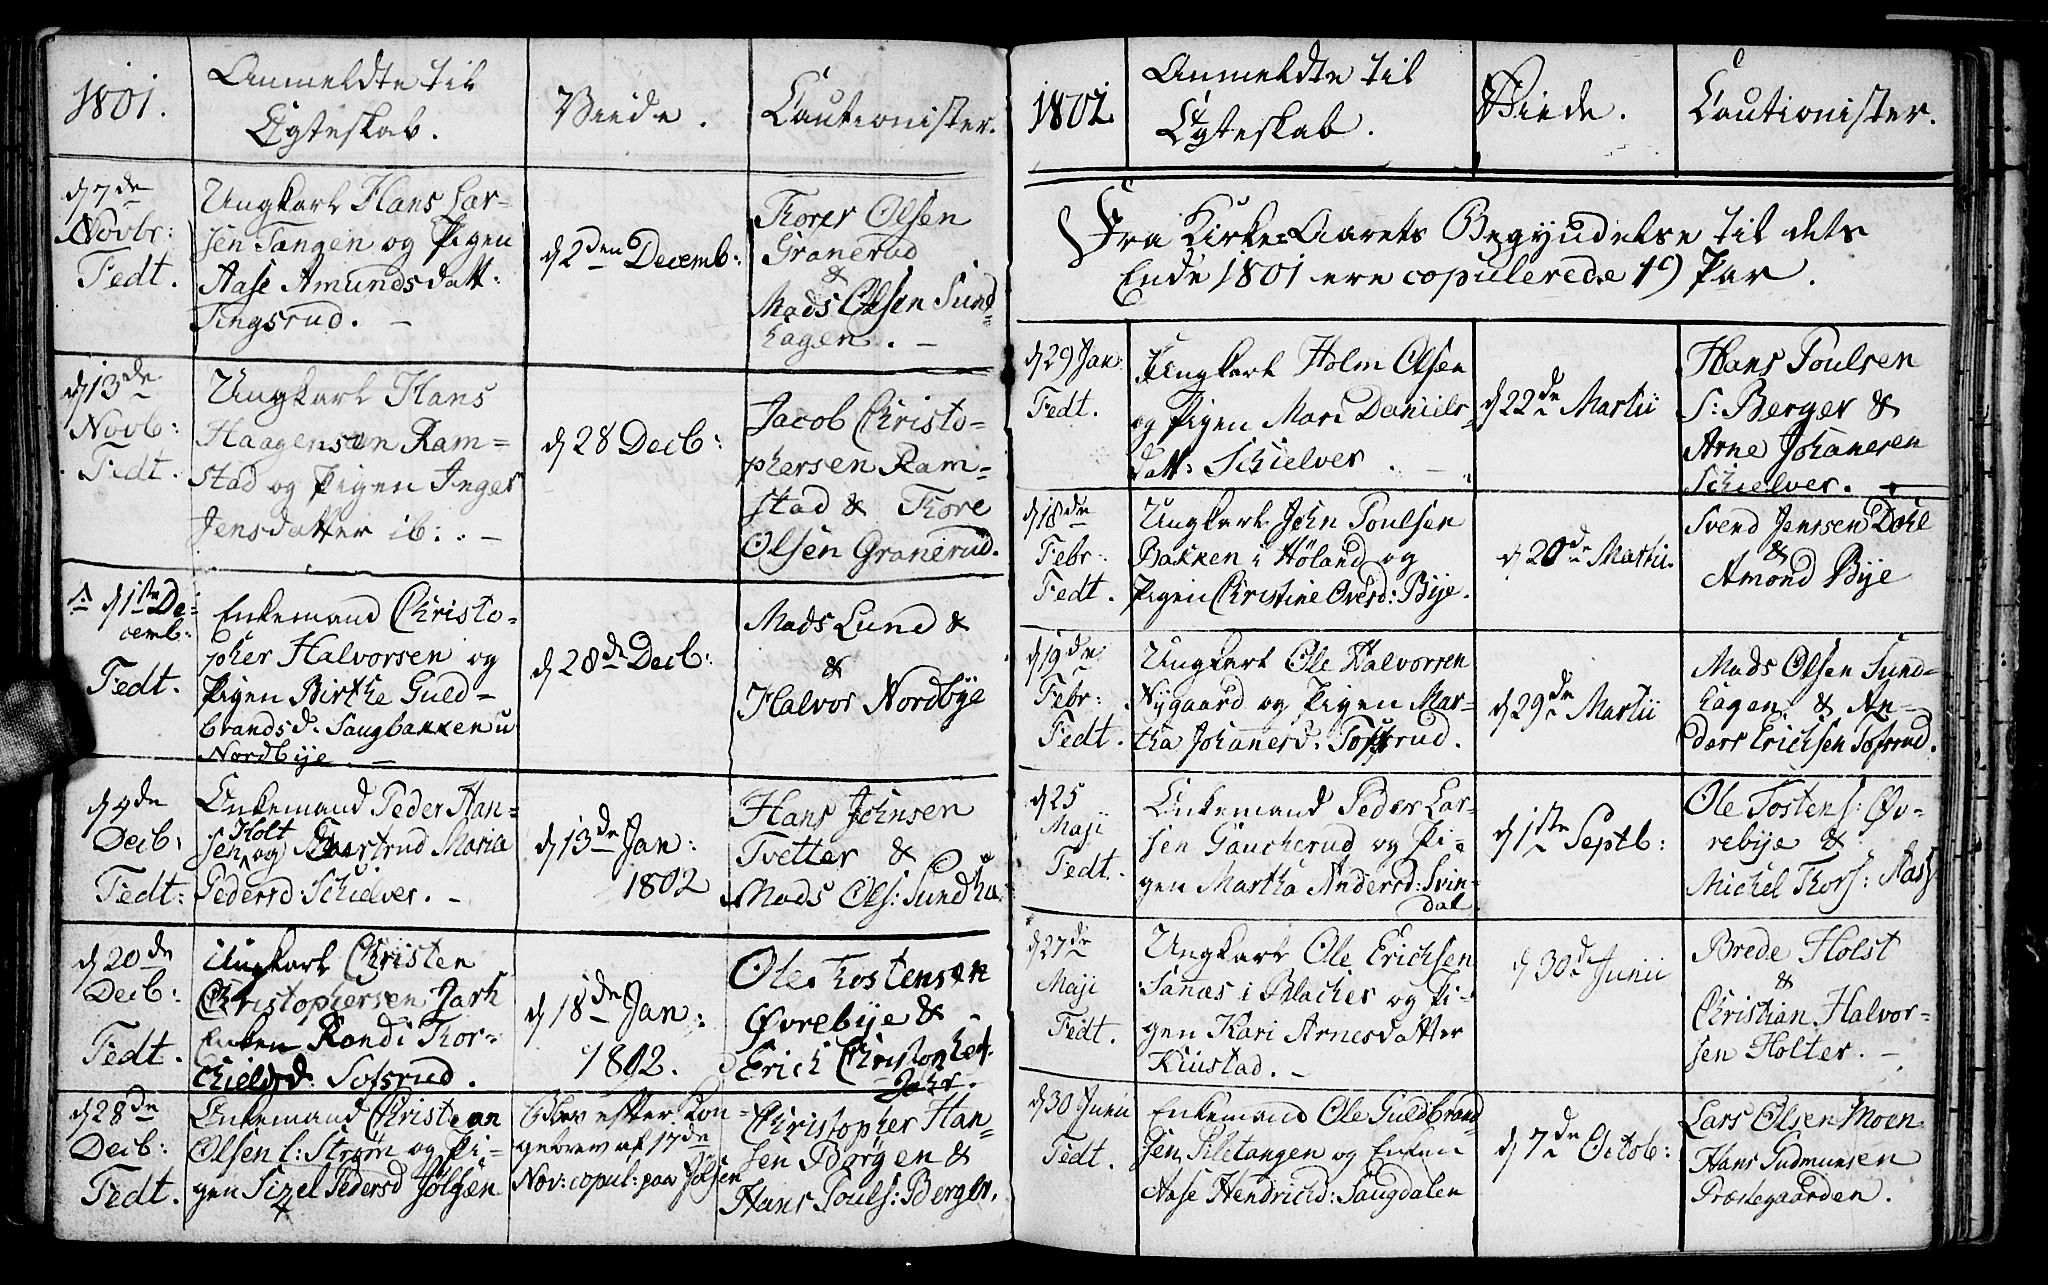 1801.
Anmeldte til
Egteskab.
Viede.
Cautionister.
d 7de
Novbr:
Fedt.
Ungkarl Hans Lar-
sen Tangen og Pigen
Aase Amundsdatt:
Tingsrud. -
d 2den Decemb:
Thorer Olsen
Granerud
&
Mads Olsen Sund
hagen. -
d 13de
Novb:
Fedt.
Ungkarl Hans
Haagensen Ram-
stad og Pigen Inger
Jensdatter ib: . -
d 28 Decb:
Jacob Christo-
phersen Ram-
stad & Thore
Olsen Granerud.
d 1ste De-
cemb:
Fedt.
Enkemand Christo-
pher Halvorsen og
Pigen Birthe Guld-
brandsd. Saugbakken u
Nordbye. -
d 28de Decb:
Mads Lund &
&
Halvor Nordbye
d 4de
Decb:
Fedt:
Enkemand Peder Han-
sen Holt og Maria
Pedersd: Schielver. -
d 13de Jan:
1802
Hans Johnsen
Tvetter &
Mads Ols: Sundha
d 20de
Decb:
Fedt.
Ungkarl Christen
Christophersen Jarh
Enken Rondi Thor-
chieldsd. Sofsrud.
d 18de Jan:
1802.
Ole Thostensen
Øvrebye &
Erich Christopher
Jahr.
d 28de
Decb:
Fedt.
Enkemand Christean
Olsen l: Strøm og Pi-
gen Sizel Pedersd Jølsen
efter Kon-
gebrev af 17de
Nov: copul: paa Jølsen
Christopher Han-
sen Børgen &
Hans Pouls: Berger.
1802
Anmeldte til
Egteskab.
Viede.
Cautionister.
Fra Kirke-Aarets Begyndelse til dets
Ende 1801 ere copulerede 19 Par.
d 29 Jan:
Fedt.
Ungkarl Holm Olsen
og Pigen Mari Daniels
datt: Schielver. -
d 22de Martii
Hans Poulsen
S: Berger &
Arne Johanesen
Schielver. -
d 18de
Febr:
Fedt.
Ungkarl John Poulsen
Bakken i Høland og
Pigen Christine Oversd: Bye.
d 20de Martii.
Svend Jensen Dahl
&
Amond Bye
d 19de
Febr:
Fedt.
Ungkarl Ole Halvorsen
Nygaard og Pigen Mar-
tha Johanesd. Tofsrud.
d 29de Martii
Mads Olsen Sund-
hagen & An-
ders Erichsen Sofsrud.
d 25
Maji
Fedt.
Enkemand Peder Lar-
sen Gaucherud og Pi-
gen Martha Andersd: Svin-
dal
d 1ste Septb:
Ole Tostens: Øv-
rebye &
Michel Thors: Aass
d 27de
Maji
Fedt.
Ungkarl Ole Erichsen
Sanæs i Blacher og Pi-
gen Kari Arnesdatter
Kiustad. -
d 30de Junii
Brede Holst
&
Christian Halvor-
sen Holter. -
d 30 Junii
Fedt.
Enkemand Ole Guldbrand-
sen Siletangen og Enken
Aase Hendrichd: Saugdalen
d 7de Octob:
Lars Olsen Moen
Hans Gudmunsen
Præstegaarden.